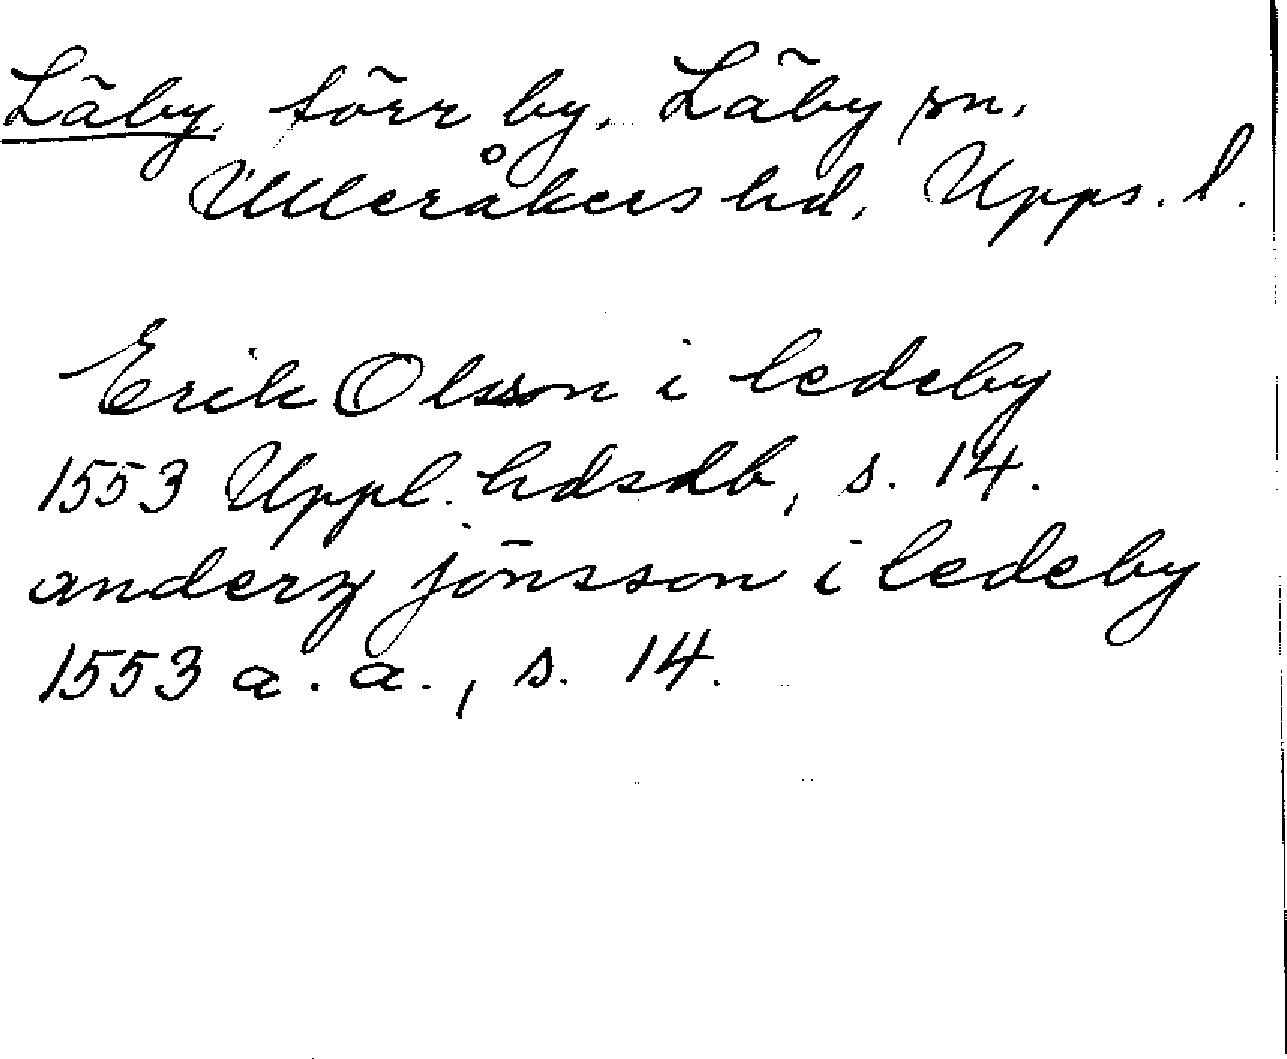 Läby, förr by. Läby sn.
Ulleråkers hd. Upps. l.
Erik Olsson i ledeby
1553 Uppl. hdsdb, s. 14.
anderz jönsson i ledeby
1553 a. a., s. 14.